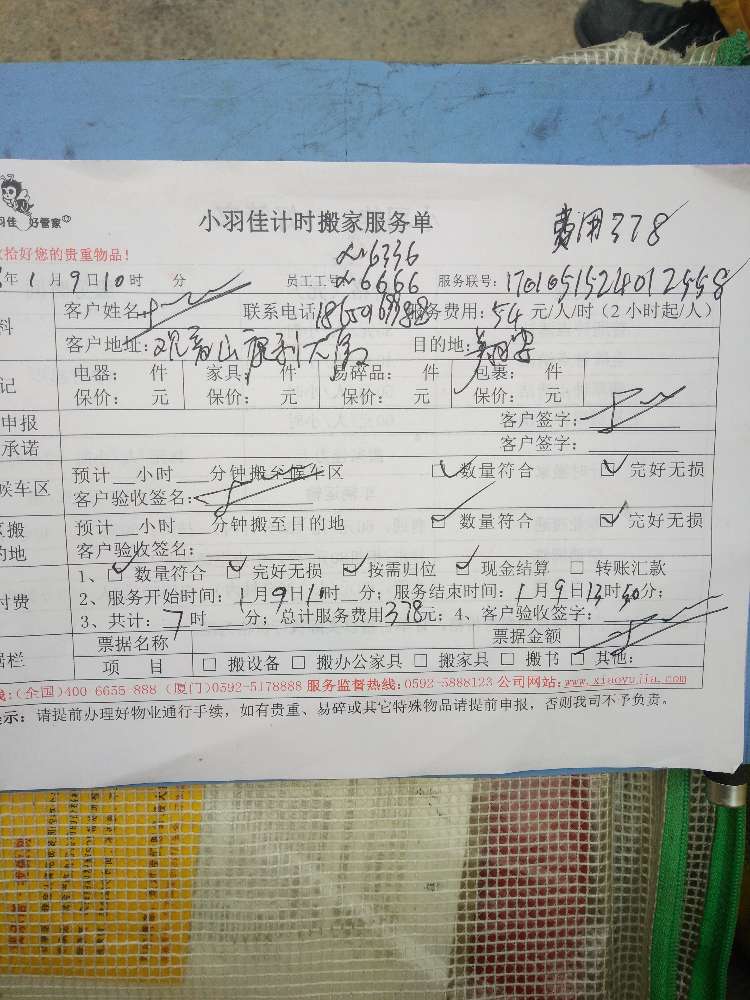 羽佳 好管家
小羽佳计时搬家服务单
费用378
拾好您的贵重物品！
年1月9日10时 分 员工工号: 6336 6666 服务联号: 170105152401 2558
客户姓名: 联系电话 服务费用: 54 元/人/时（2小时起/人）
客户地址: 观音山 目的地:
电器: 件 家具: 件 易碎品: 件 包裹: 件
保价: 元 保价: 元 保价: 元 保价: 元
申报 客户签字:
承诺 客户签字:
预计__小时___分钟搬至候车区 数量符合 完好无损
候车区 客户验收签名:
搬 预计__小时___分钟搬至目的地 数量符合 完好无损
的地 客户验收签名:
1、 数量符合 完好无损 按需归位 现金结算 转账汇款
付费 2、服务开始时间: 1月9日10时__分; 服务结束时间: 1月9日13时30分;
3、共计: 7时___分; 总计服务费用378元; 4、客户验收签字:
票据名称 票据金额
据栏 项 目 搬设备 搬办公家具 搬家具 搬书 其他:
线:(全国)400-6655-888 (厦门)0592-5178888 服务监督热线:0592-5888123 公司网站:www.xiaoyujia.com
示: 请提前办理好物业通行手续，如有贵重、易碎或其它特殊物品请提前申报，否则我司不予负责。